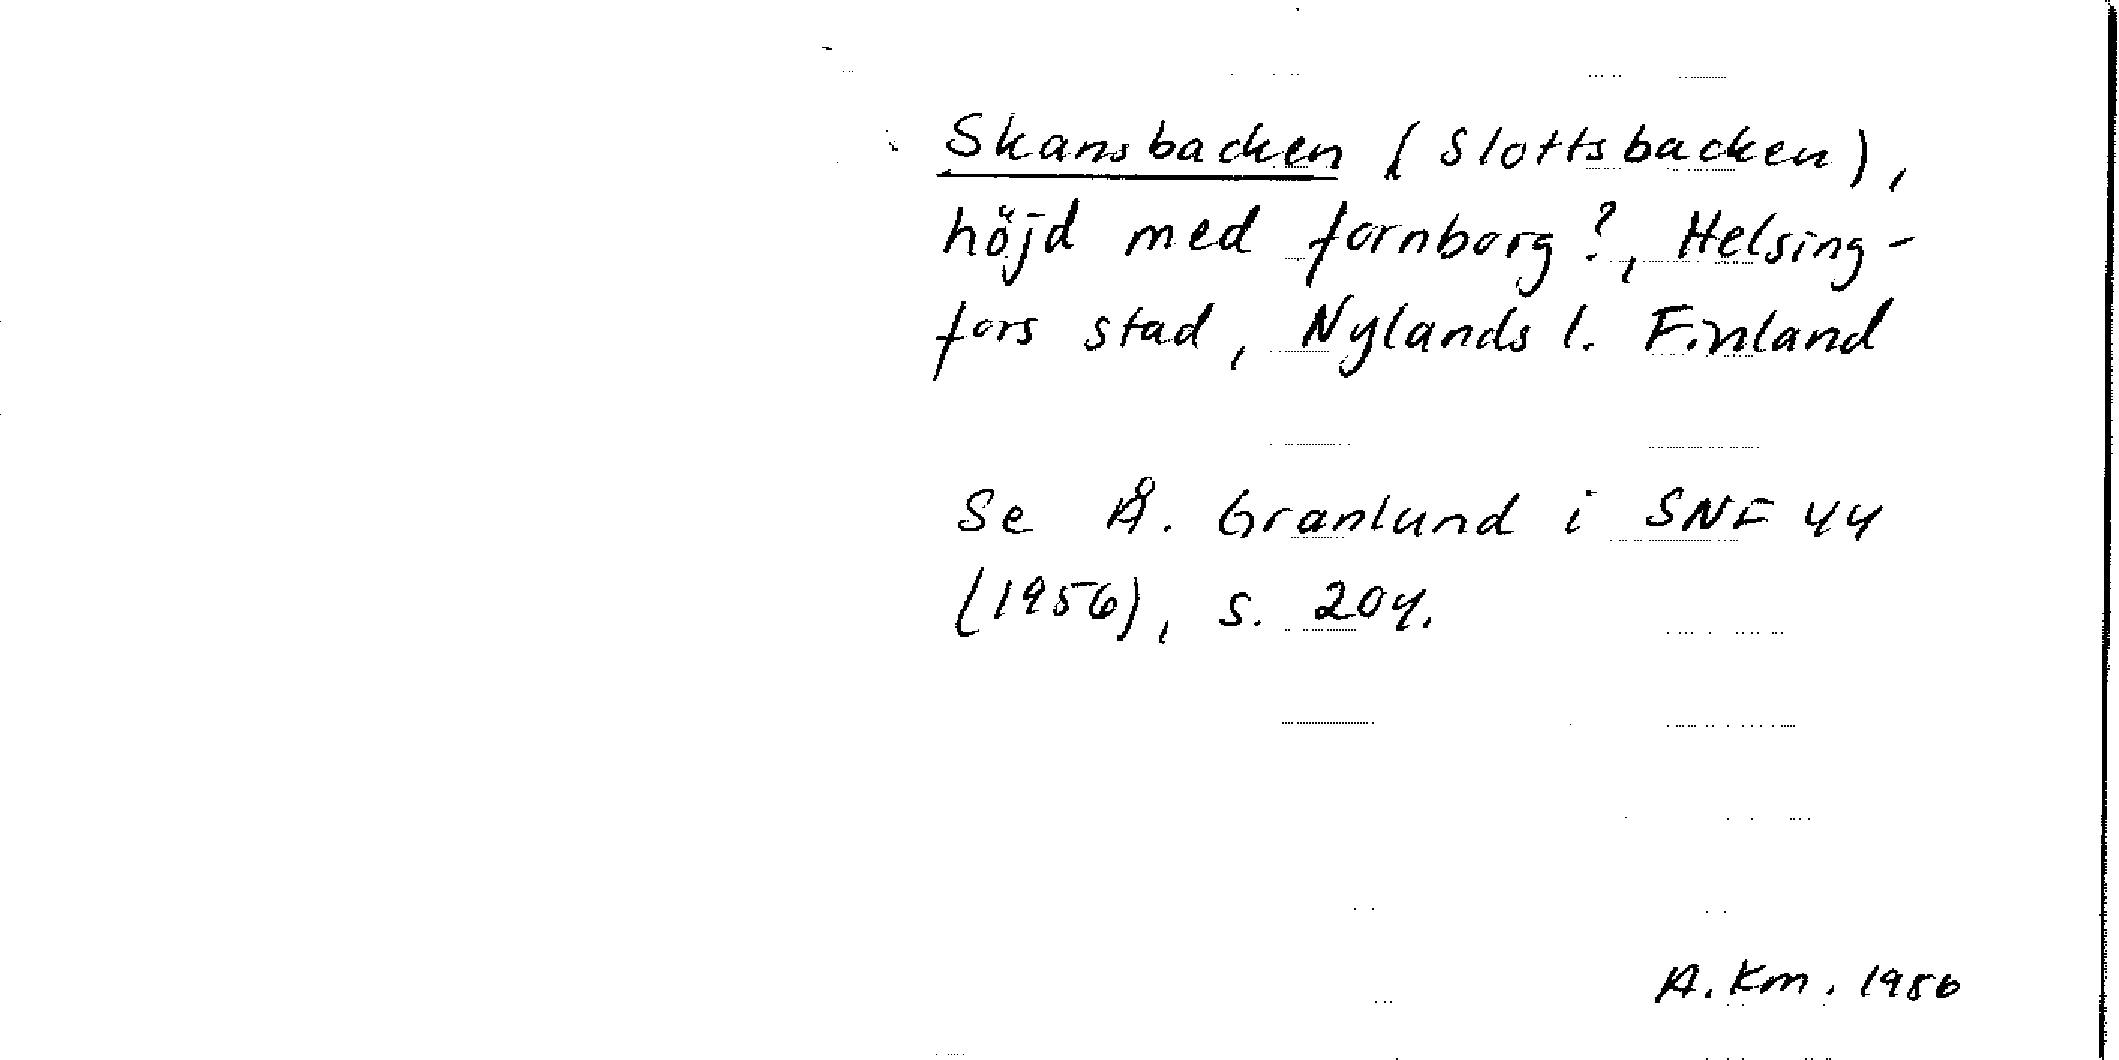 Skansbacken (Slottsbacken),
höjd med fornborg?, Helsing-
fors stad, Nylands l. Finland
Se Å. Granlund i SNF 44
(1956), s. 204.
A. Km. 1986